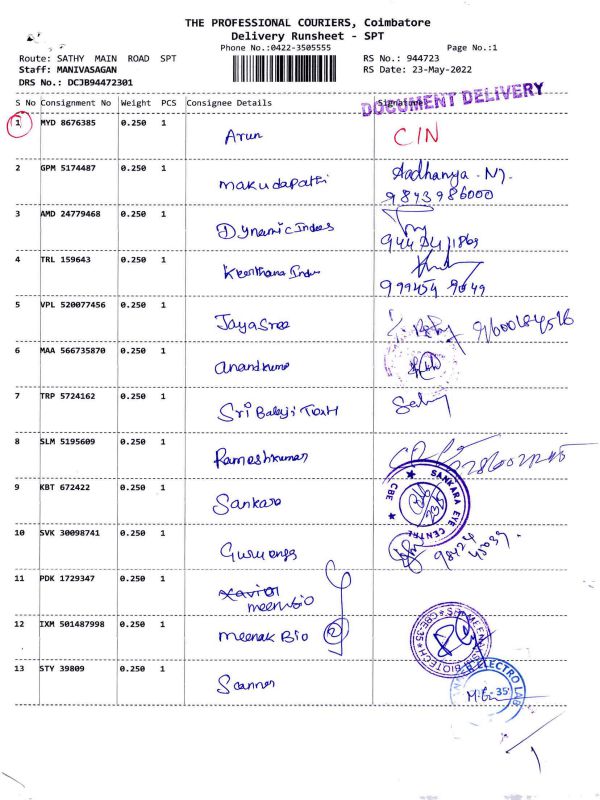 THE PROFESSIONAL COURIERS, Coimbatore
Delivery Runsheet - SPT
Phone No.:0422-3505555 Page No.:1
Route: SATHY MAIN ROAD SPT RS No.: 944723
Staff: MANIVASAGAN RS Date: 23-May-2022
DRS No.: DCJB94472301
DOCUMENT DELIVERY
S No Consignment No Weight PCS Consignee Details Signature
1 MYD 8676385 0.250 1 Arun CIN
2 GPM 5174487 0.250 1 makudapathi Aadhanya. N
9843986000
3 AMD 24779468 0.250 1 Dynamic Indees
4 TRL 159643 0.250 1 Keerthana Indus
5 VPL 520077456 0.250 1 Jayasree
6 MAA 566735870 0.250 1 anandkumar
7 TRP 5724162 0.250 1 Sri Balaji
8 SLM 5195609 0.250 1 Rameshkumar
9 KBT 672422 0.250 1 Sankara SANKARA EYE CENTRE CBE
10 SVK 30098741 0.250 1
11 PDK 1729347 0.250 1 Xavior
12 IXM 501487998 0.250 1 meenak Bio 2 BIOTECH CBE-35
13 STY 39809 0.250 1 Scanner ELECTRO LAB 35